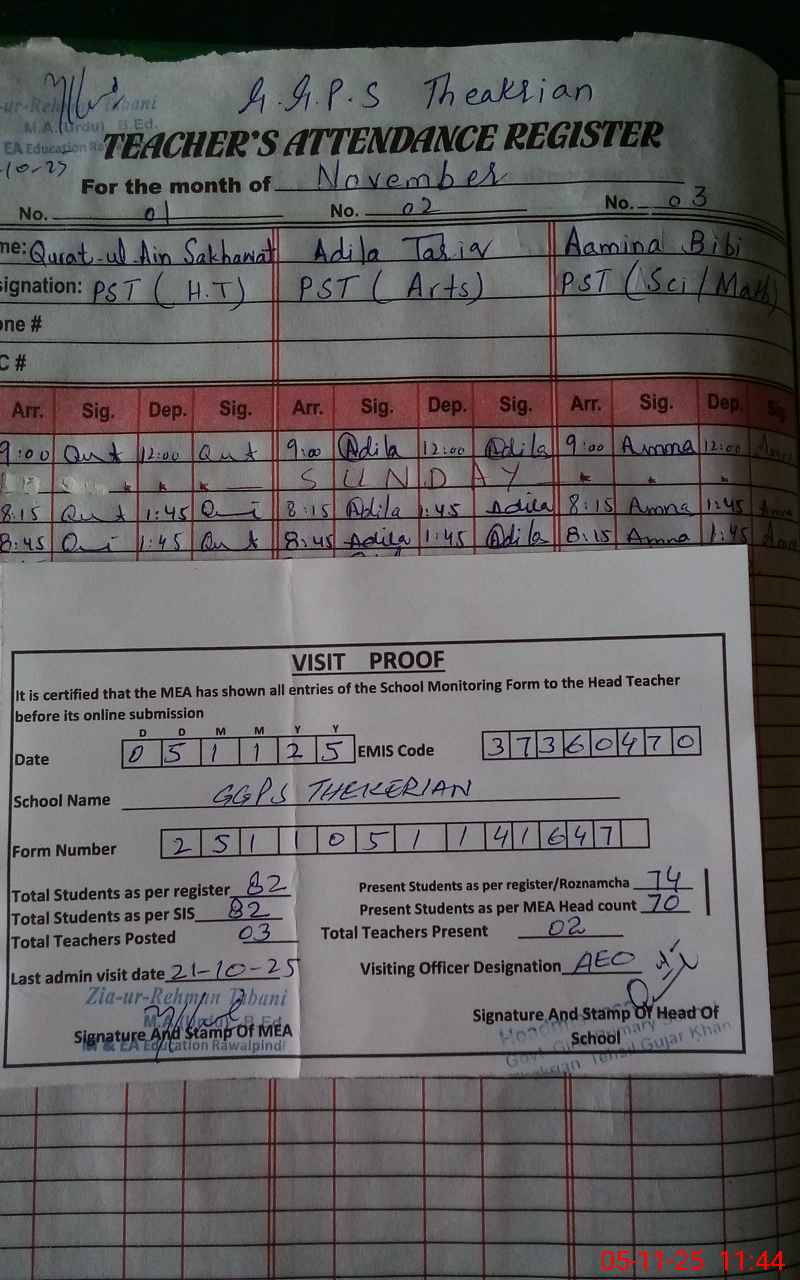 G.G.P.S Theakrian
M.A.(Urdu), B.Ed.
EA Education
TEACHER'S ATTENDANCE REGISTER
For the month of November
No. 01 No. 02 No. 03
me: Qurat-ul Ain Sakhawat Adila Tariq Aamina Bibi
signation: PST (H.T) PST (Arts) PST (Sci/Math)
one #
C #
Arr. Sig. Dep. Sig. Arr. Sig. Dep. Sig. Arr. Sig. Dep. Sig
9:00 12:00 9:00 Adila 12:00 Adila 9:00 Amna 12:00
SUNDAY
8:15 1:45 8:15 Adila 1:45 Adila 8:15 Amna 1:45
8:45 1:45 8:45 Adila 1:45 Adila 8:15 Amna 1:45
VISIT PROOF
It is certified that the MEA has shown all entries of the School Monitoring Form to the Head Teacher
before its online submission
D D M M Y Y
Date 0 5 1 1 2 5 EMIS Code 3 7 3 6 0 4 7 0
School Name GGPS THEKERIAN
Form Number 2 5 1 1 0 5 1 1 4 1 6 4 7
Total Students as per register 82 Present Students as per register/Roznamcha 74
Total Students as per SIS 82 Present Students as per MEA Head count 70
Total Teachers Posted 03 Total Teachers Present 02
Last admin visit date 21-10-25 Visiting Officer Designation AEO
Zia-ur-Rehman
Signature And Stamp Of MEA Signature And Stamp Of Head Of
School
M & EA Education Rawalpindi
Tehsil Gujar Khan
05-11-25 11:44